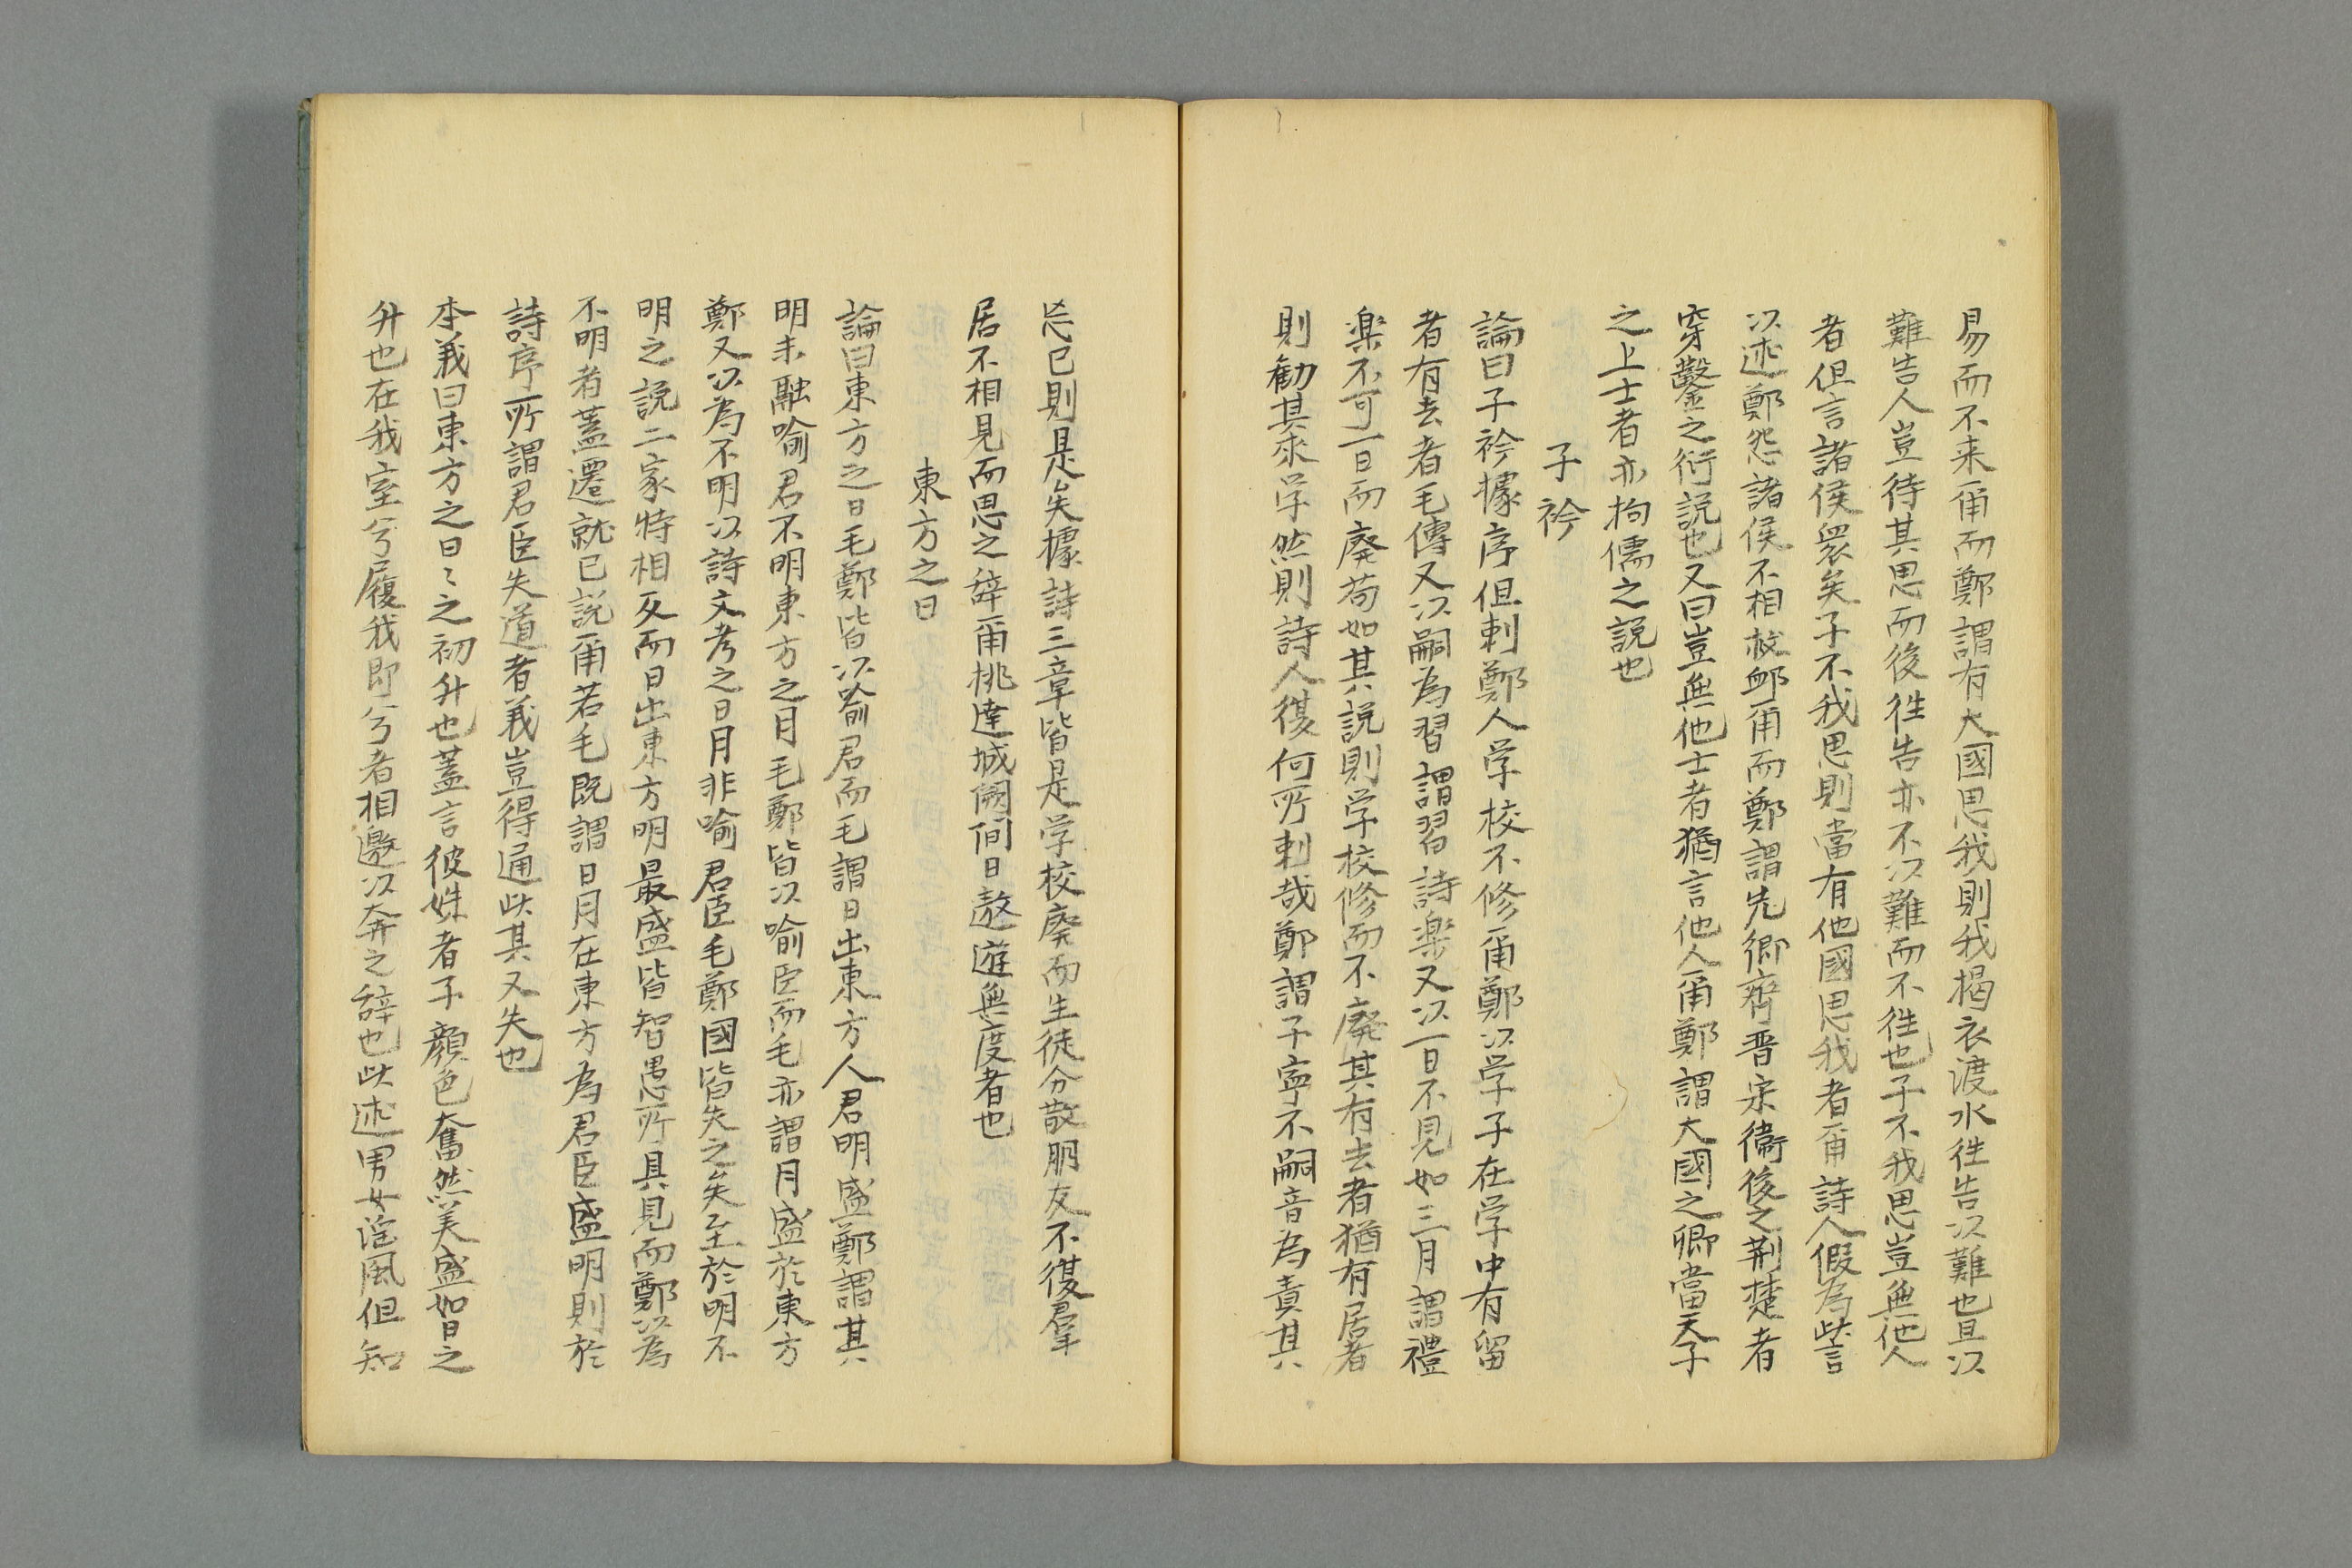 易而不来甭而鄭謂有大國思我則我揭衣渡水徃告以難也且以
難告人豈待其思而後徃告亦不以難而不徃也子不我思豈無他人
者但言諸侯衆矣子不我思則當有他國思我者甭詩人假為此言
以述鄭怨諸侯不相救䘏甭而鄭謂先郷齊晋宋衛後之荆楚者
穿鑿之衍説也又曰豈無他士者猶言他人甭鄭謂大國之卿當天子
之上士者亦拘儒之説也
子衿
論曰子衿據序但刺鄭人学校不修甭鄭以学子在学中有留
者有去者毛傳又以嗣為習謂習詩楽又以一日不見如三月謂禮
楽不可一日而廃苟如其説則学校修而不廃其有去者猶有居者
則勧其来学然則詩人復何所刺哉鄭謂子寧不嗣音為責其
忘己則是矣據詩三章皆是学校廃而生徒分散朋友不復羣
居不相見而思之辞甭挑達城闕間日遨遊無度者也
東方之日
論曰東方之日毛鄭皆以喩君而毛謂日出東方人君明盛鄭謂其
明未融喩君不明東方之月毛鄭皆以喩臣而毛亦謂月盛於東方
鄭又以為不明以詩文考之日月非喩君臣毛鄭國皆失之矣至於明不
明之説二家特相反而日出東方明最盛皆智愚所具見而鄭以為
不明者蓋遷就己説甭若毛既謂日月在東方為君臣盛明則於
詩序所謂君臣失道者義豈得通此其又失也
本義曰東方之日〻之初升也蓋言彼姝者子顔色奮然美盛如日之
升也在我室兮履我即兮者相邀以奔之辞也此述男女淫風但知